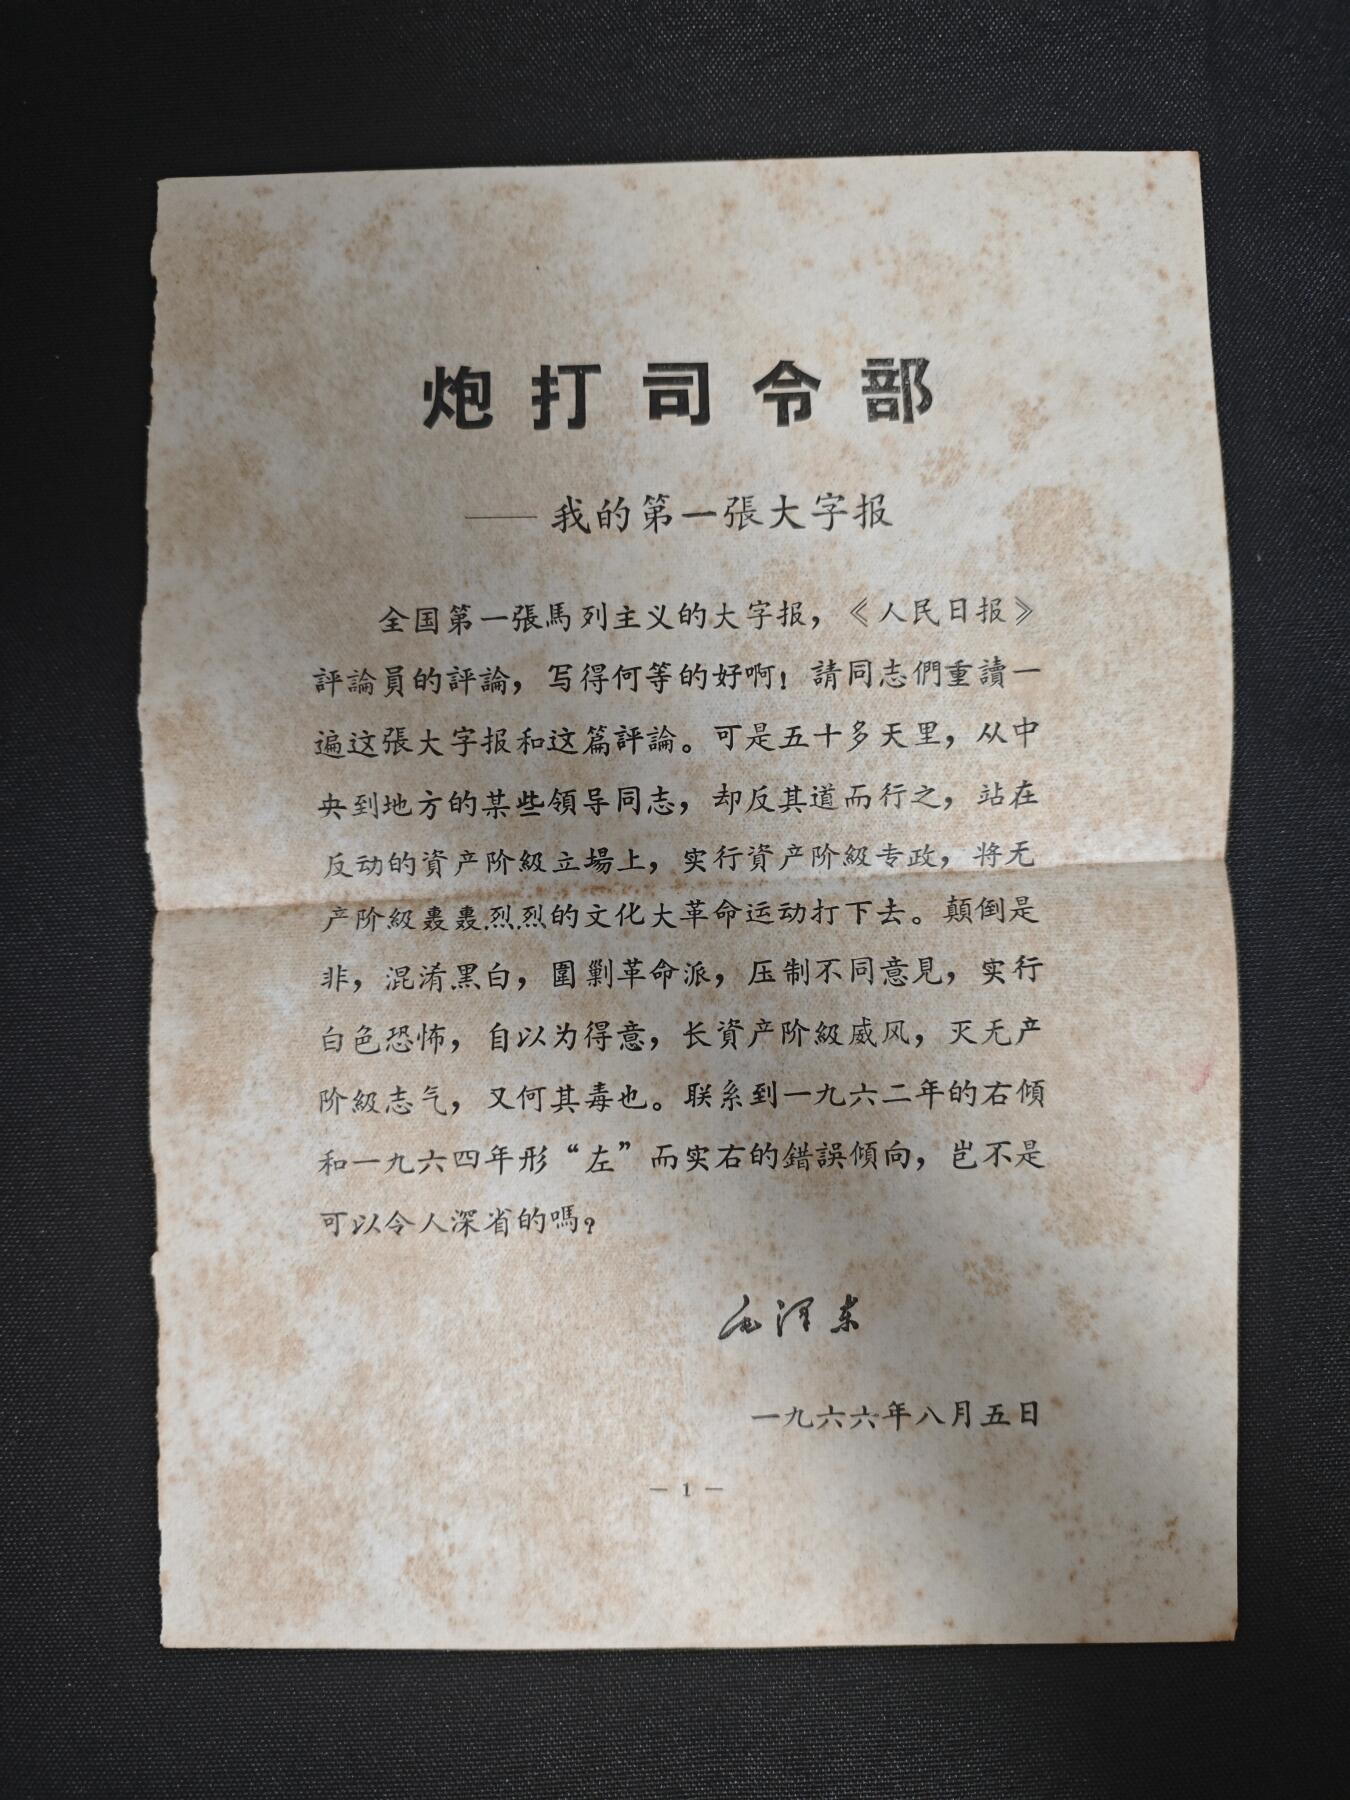 炮打司令部
——我的第一張大字报
全国第一張馬列主义的大字报，《人民日报》
評論員的評論，写得何等的好啊！請同志們重讀一
遍这張大字报和这篇評論。可是五十多天里，从中
央到地方的某些領导同志，却反其道而行之，站在
反动的資产阶級立場上，实行資产阶級专政，将无
产阶級轰轰烈烈的文化大革命运动打下去。顛倒是
非，混淆黑白，圍剿革命派，压制不同意見，实行
白色恐怖，自以为得意，长資产阶級威风，灭无产
阶級志气，又何其毒也。联系到一九六二年的右傾
和一九六四年形“左”而实右的錯誤傾向，岂不是
可以令人深省的嗎？
毛泽东
一九六六年八月五日
— 1 —